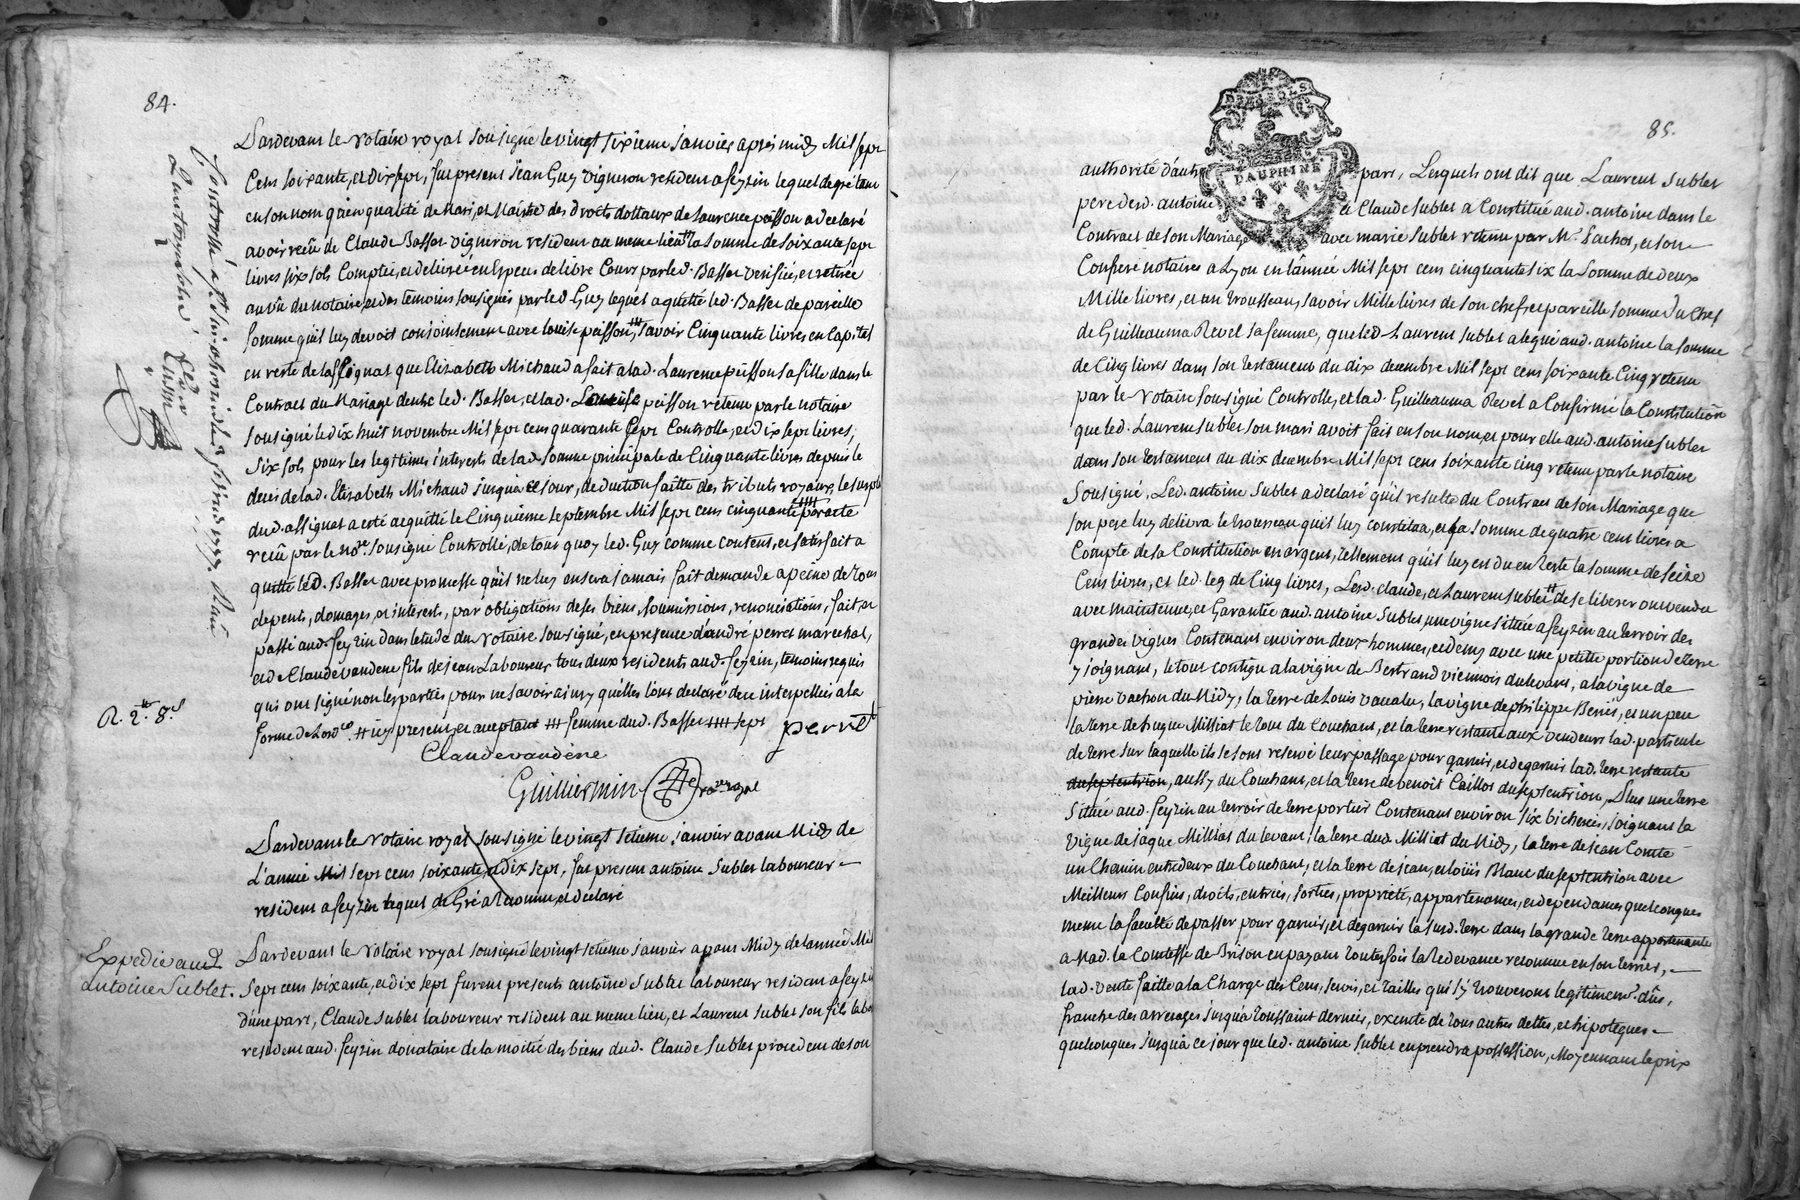 84.
Pardevant le Notaire royal sousigné le vingt sixieme janvier après midy Mil sept
Cens soixante, et dix sept, fut present Jean Guy vigneron resident a feyzin lequel de gré tant
en son nom qu'en qualité de Mari, et Maitre des droits dottaux de Laurence peisson a declaré
avoir reçû de Claude Basset vigneron resident au meme lieu la somme de soixante sept
livres six sols Comptée, et delivrée en Especes de libre Cours par led. Basset verifiée, et retirée
au vû du notaire, et des temoins sousignés par led Guy lequel a quitté led. Basset de pareille
somme qu'il luy devoit conjointement avec louise peisson, ## savoir Cinquante livres en Capital
en reste de lassignat que Elizabeth Michaud a fait a lad. Laurence peisson sa fille dans le
Contract du Mariage dentre led. Basset, et lad. Louise peisson retenu par le notaire
sousigné le dix huit novembre Mil sept cens quarante sept Controllé, et dix sept livres,
six sols pour les legitimes interests de lad somme principale de Cinquante livres depuis le
deces de lad. Elizabeth Michaud jusqua ce jour, deduction faitte des tributs royaux, le surplus
dud. assignat a eté acquitté le Cinquieme septembre Mil sept cens cinquante #### par acte
reçû par le nore sousigné Controllé, de tout quoy led. Guy comme content, et satisfait a
quitté led. Basset avec promesse qu'il ne luy en sera jamais fait demande a peine de tous
depents, domages, et interests, par obligations de ses biens, soumissions, renonciations, fait, et
passé aud. feyzin dans letude du Notaire sousigné, en presence d'andré perret marechal,
et de Claude vandene fils de jean Laboureur tous deux residents aud. feyzin, temoins requis
qui ont signé non les parties pour ne savoir ainsy quelles lont declaré de ce interpellées a la
forme de Lordce. ## icy present, et acceptant ### femme dud. Basset #### sept perret
Claude vandene
Guilliermin nore royal
R. 2.tt 8.s
Pardevant le Notaire royal sousigné le vingt setieme janvier avant Midy de
L'année Mil sept cens soixante, et dix sept, fut present antoine Sublet laboureur
resident a feyzin lequel de Gré a reconnu, et declaré
Expedié aud
antoine Sublet.
Pardevant le Notaire royal sousigné le vingt setieme janvier apres Midy de lannée Mil
Sept cens soixante, et dix sept furent presents antoine Sublet laboureur resident a feyzin
d'une part, Claude Sublet laboureur resident au meme lieu, et Laurent Sublet son fils labo
resident aud. feyzin donataire de la moitié des biens dud. Claude Sublet procedent de son
85.
DAUPHINE
authorité d'autre part, Lesquels ont dit que Laurent Sublet
pere desd. antoine et Claude Sublet a Constitué aud. antoine dans le
Contract de son Mariage avec marie Sublet retenu par Me. et son
Confrere notaires a Lyon en l'année Mil sept cens cinquante six la Somme de deux
Mille livres, et un trousseau, savoir Mille livres de son chef, et pareille somme du Chef
de Guilleauma Revel sa femme, que led. Laurent Sublet a legué aud. antoine la somme
de Cinq livres dans son testament du dix decembre Mil sept cens soixante Cinq retenu
par le Notaire sousigné Controllé, et lad. Guilleauma Revel a Confirmé la Constitution
que led. Laurent Sublet son mari avoit fait en son nom, et pour elle aud. antoine Sublet
dans son testament du dix decembre Mil sept cens soixante cinq retenu par le notaire
sousigné. Led. antoine Sublet a declaré qu'il resulte du Contract de son Mariage que
son pere luy delivra le trousseau quil luy constitua, et la somme de quatre cens livres a
Compte de sa Constitution en argent, tellement qu'il luy est du en reste la somme de seize
Cens livres, et led. leg de Cinq livres, Lesd. claude, et Laurent Sublet ## de se liberer ont vendu
avec maintenue, et Garantie aud. antoine Sublet, une vigne située a feyzin au terroir des
grandes vignes Contenant environ deux hommes, et demy avec une petitte portion de terre
y joignant, le tout contigu a la vigne de Bertrand viennois du levant, a la vigne de
pierre vachon du Midy, la terre de Louis la vigne de philippe Beniés, et un peu
la terre de hugue Milliat le tout du Couchant, et la terre restante aux vendeurs lad. particule
de terre sur laquelle ils se sont reservé leur passage pour garnir, et degarnir lad. terre restante
du septentrion, aussy du Couchant, et la terre de benoit Caillot du septentrion, Plus une terre
située aud. feyzin au terroir de terre portier Contenant environ six bicherées, joignant la
vigne de jaque Milliat du levant, la terre dud. Milliat du Midy, la terre de jean Comte
un Chemin entredeux du Couchant, et la terre de jean, et loüis Blanc du septentrion avec
Meilleurs Confins, droits, entrées, sorties, proprieté, appartenances, et dependances quelconques
meme la faculté de passer pour garnir, et degarnir la susd. terre dans la grande terre appartenante
a Mad. la Comtesse de Brison en payant toutesfois la Redevance reconnue en son terrier,
lad. vente faitte a la Charge des Cens, servis, et tailles qui s'y trouveront legitimemt. dûs,
franche des arrerages jusqua toussaint dernier, exemte de tous autres dettes, et hipoteques
quelconques jusqu'à ce jour que led. antoine Sublet en prendra possession, Moyennant le prix